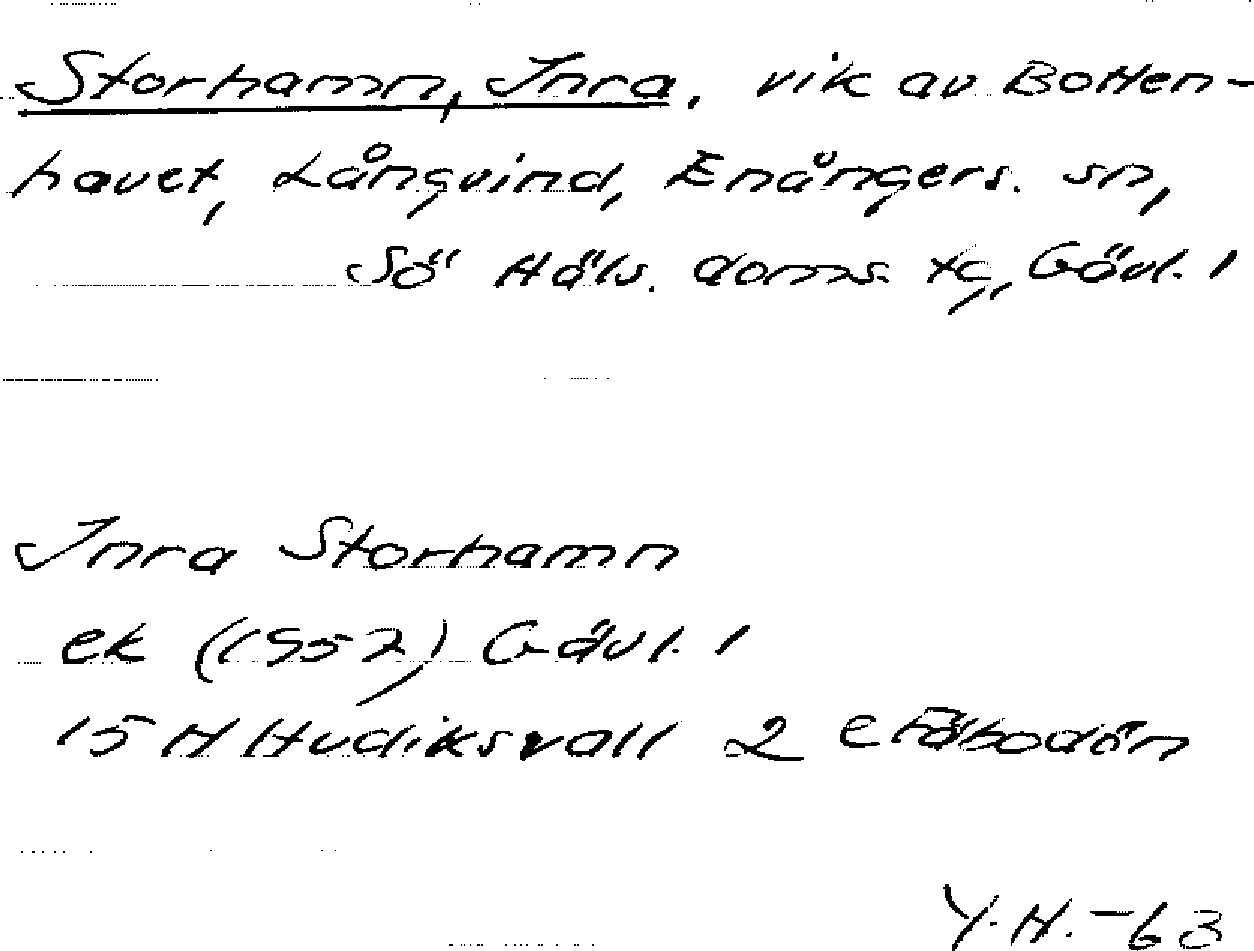 Storhamn, Inra, vik av Botten-
havet, Långvind, Enångers. sn,
Sö Häls. doms. tg, Gävl. l
Inra Storhamn
ek (1952) Gävl. l
15 H Hudiksvall 2 e Fäbodön
Y.H.-63